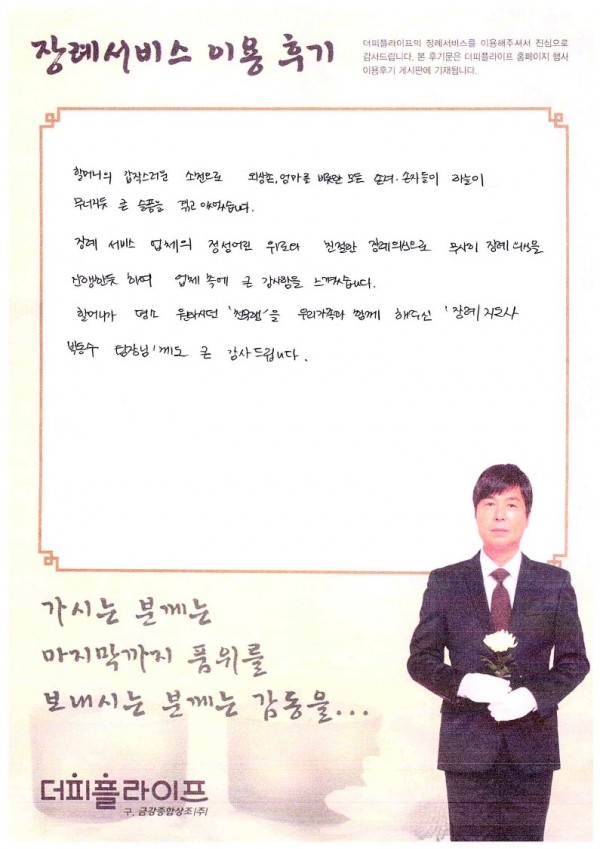 장례서비스 이용 후기
더피플라이프의 장례서비스를 이용해주셔서 진심으로
감사드립니다. 본 후기문은 더피플라이프 홈페이지 행사
이용후기 게시판에 기재됩니다.
할머니의 갑작스러운 소천으로 외삼촌, 엄마를 비롯한 모든 손녀·손자들이 하늘이
무너지듯 큰 슬픔을 겪고 있었습니다.
장례 서비스 업체의 정성어린 위로와 친절한 장례의식으로 무사히 장례 의식을
진행한듯 하여 업체 측에 큰 감사함을 느꼈습니다.
할머니가 원하시던 을 우리가족과 함께 해주신 '장례지도사
박동수 팀장님'께도 큰 감사드립니다.
가시는 분께는
마지막까지 품위를
보내시는 분께는 감동을...
더피플라이프
구. 금강종합상조(주)